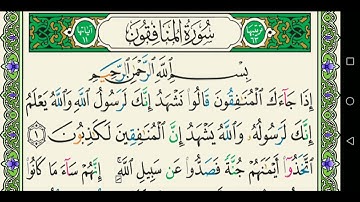 ترتيبها ٦٣ سُورَةُ الْمُنَافِقُونَ آياتها ١١
بِسْمِ اللَّهِ الرَّحْمَٰنِ الرَّحِيمِ
إِذَا جَآءَكَ ٱلْمُنَٰفِقُونَ قَالُوا۟ نَشْهَدُ إِنَّكَ لَرَسُولُ ٱللَّهِ وَٱللَّهُ يَعْلَمُ
إِنَّكَ لَرَسُولُهُۥ وَٱللَّهُ يَشْهَدُ إِنَّ ٱلْمُنَٰفِقِينَ لَكَٰذِبُونَ ١
ٱتَّخَذُوٓا۟ أَيْمَٰنَهُمْ جُنَّةً فَصَدُّوا۟ عَن سَبِيلِ ٱللَّهِ ۚ إِنَّهُمْ سَآءَ مَا كَانُوا۟